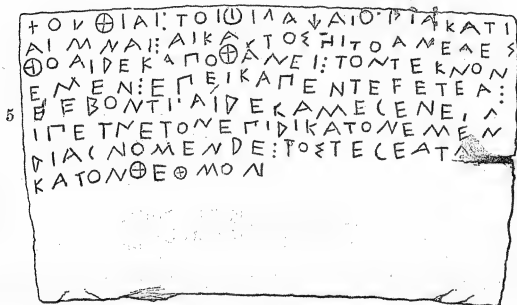 +ΟΥΘΙΑΙ:ΤΟΙΦΙΛΑΨΑΙΟ:ΔΙΑΚΑΤΙ
ΑΙΜΝΑΙ:ΑΙΚΑ ΤΟΣΗΙΤΟΑΝΕΛΕΣ
ΘΟΑΙΔΕΚΑΠΟΘΑΝΕΙ:ΤΟΝΤΕΚΝΟΝ
ΕΜΕΝ:ΕΠΕΙΚΑΠΕΝΤΕϜΕΤΕΑ:
5 ΕΒΟΝΤΙ:ΑΙΔΕΚΑΜΕΓΕΝΕ
ΙΠΕΤΝΕΤΟΝΕΠΙΔΙΚΑΤΟΝΕΜΕΝ
ΔΙΑΓΝΟΜΕΝΔΕ:ΤΟΣΤΕΓΕΑΤ
ΚΑΤΟΝΘΕΘΜΟΝ